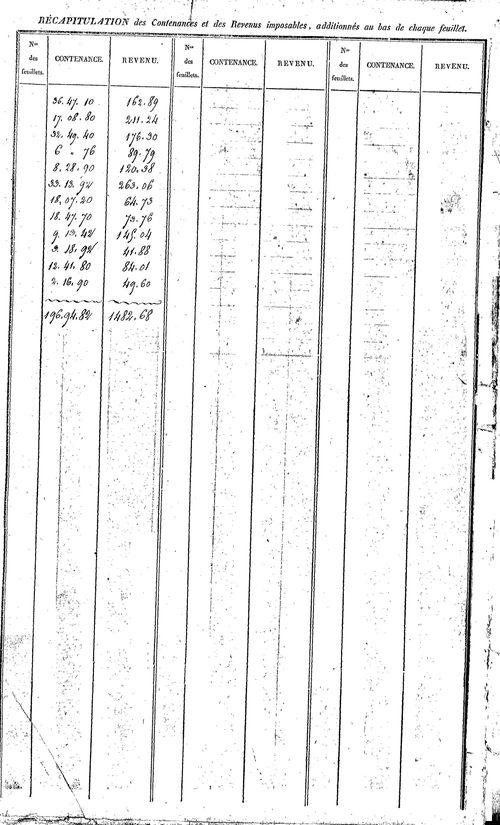 RÉCAPITULATION des Contenances et des Revenus imposables, additionnés au bas de chaque feuillet.
Nos des feuillets. CONTENANCE. REVENU. Nos des feuillets. CONTENANCE. REVENU. Nos des feuillets. CONTENANCE. REVENU.
36.47.10 162.89
17.08.80 211.24
32.49.40 176.30
6 " 76 89.79
8.28.90 120.38
33.13.92 263.06
18.07.20 64.73
18.47.70 73.76
9.13.42 145.04
3.18.92 41.88
12.41.80 84.01
2.16.90 49.60
196.94.82 1482.68